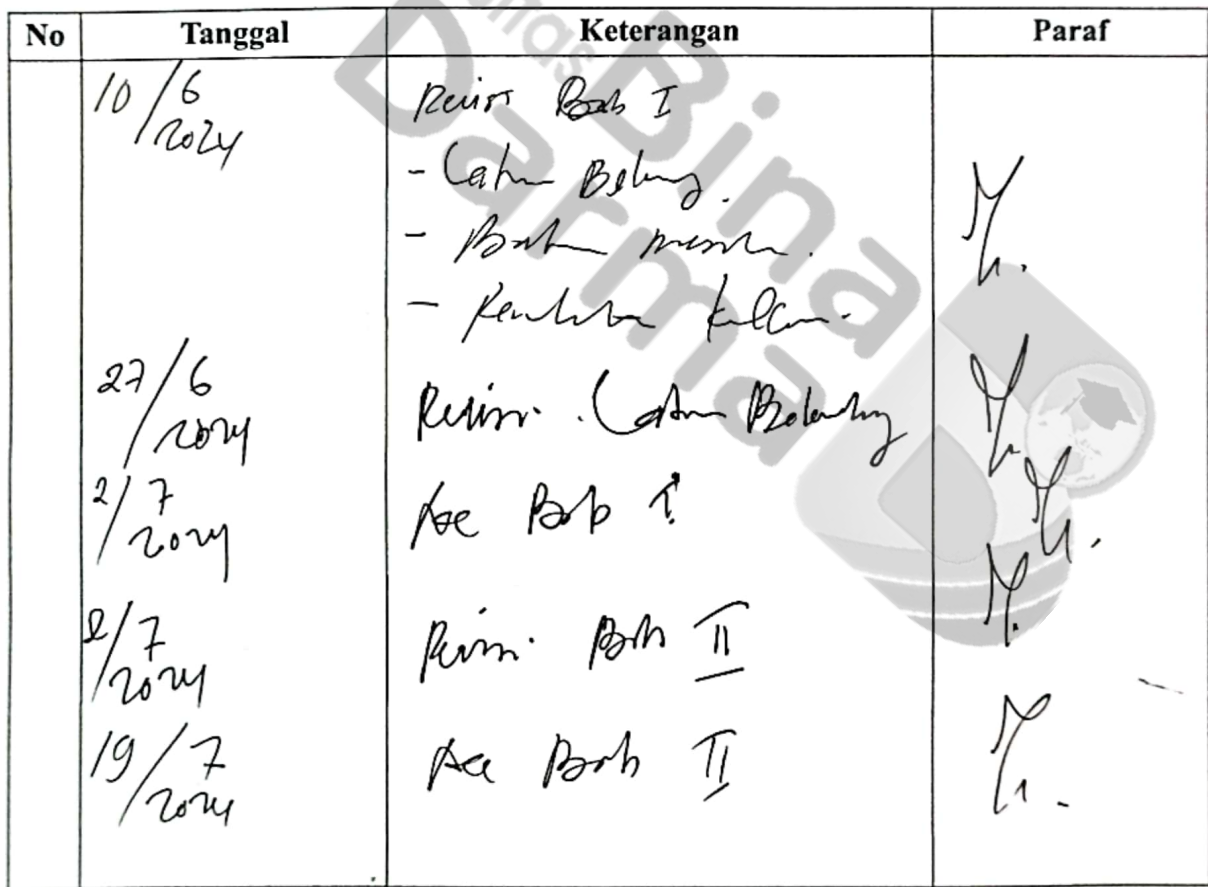 No Tanggal Keterangan Paraf
10/6 2024 Revisi Bab I
- Latar Belakang.
- Batasan masalah.
27/6 2024 Revisi. Latar Belakang
2/7 2024 Acc Bab I
2/7 2024 Revisi. Bab II
19/7 2024 Acc Bab II
Bina
Darma